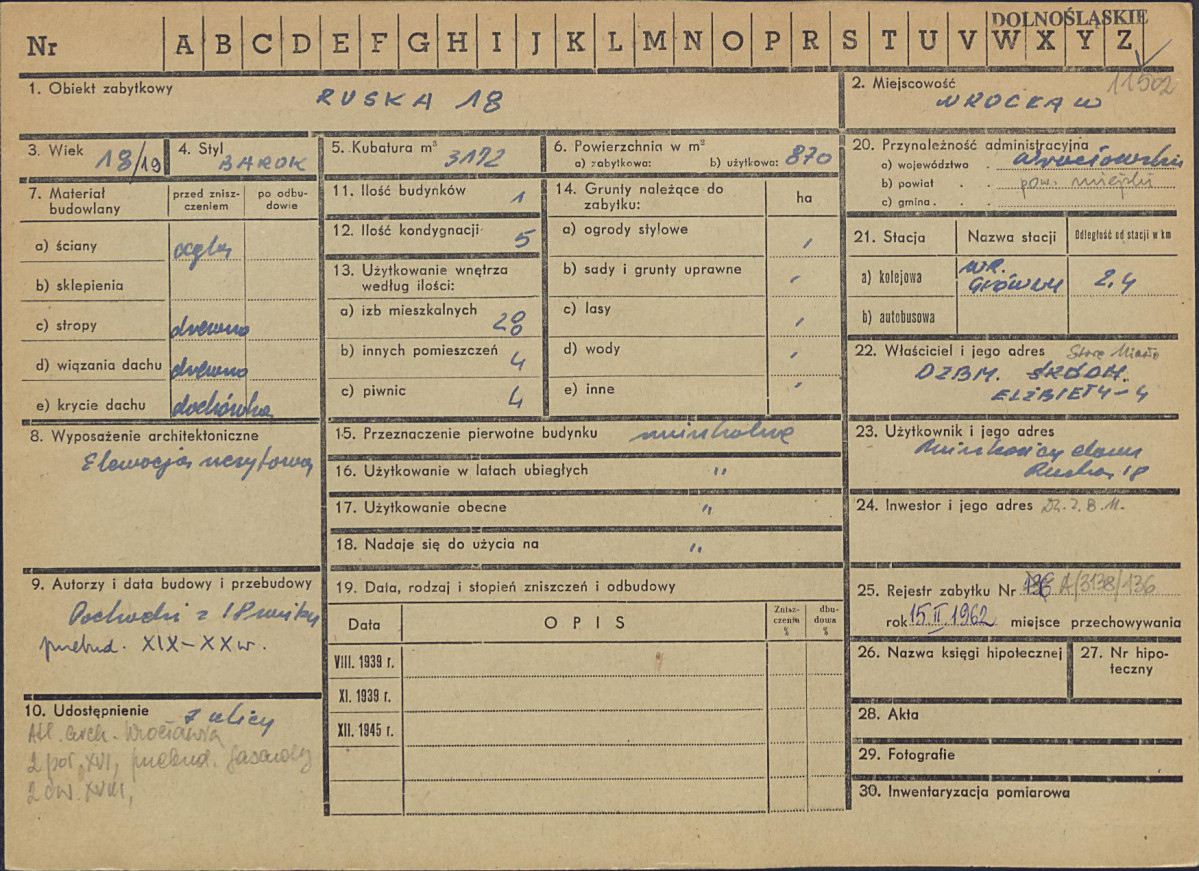 DOLNOŚLĄSKIE
Nr A B C D E F G H I J K L M N O P R S T U V W X Y Z
11502
1. Obiekt zabytkowy
RUSKA 18
2. Miejscowość
WROCŁAW
3. Wiek 18/19
4. Styl BAROK
5. Kubatura m³ 3172
6. Powierzchnia w m²
a) zabytkowa: b) użytkowa: 870
20. Przynależność administracyjna
a) województwo . wrocławskie
b) powiat . . pow. miejski
c) gmina . . .
7. Materiał budowlany
przed zniszczeniem
po odbudowie
a) ściany cegła
b) sklepienia
c) stropy drewno
d) wiązania dachu drewno
e) krycie dachu dachówka
11. Ilość budynków 1
12. Ilość kondygnacji 5
13. Użytkowanie wnętrza
według ilości:
a) izb mieszkalnych 20
b) innych pomieszczeń 4
c) piwnic 4
14. Grunty należące do
zabytku:
ha
a) ogrody stylowe
b) sady i grunty uprawne
c) lasy
d) wody
e) inne
21. Stacja Nazwa stacji Odległość od stacji w km
a) kolejowa WR. GŁÓWNY 2,4
b) autobusowa
22. Właściciel i jego adres Stare Miasto
DZBM. ŚRÓDM.
ELŻBIETY - 4
8. Wyposażenie architektoniczne
Elewacja szczytowa
15. Przeznaczenie pierwotne budynku mieszkalne
16. Użytkowanie w latach ubiegłych "
17. Użytkowanie obecne "
18. Nadaje się do użycia na "
23. Użytkownik i jego adres
Mieszkańcy domu
Ruska 18
24. Inwestor i jego adres
9. Autorzy i data budowy i przebudowy
Pochodzi z 18 wieku
przebud. XIX-XX w.
19. Data, rodzaj i stopień zniszczeń i odbudowy
Data OPIS Zniszczenia % dbudowa %
VIII. 1939 r.
XI. 1939 r.
XII. 1945 r.
25. Rejestr zabytku Nr 136 A/3138/136
rok 15 II 1962 miejsce przechowywania
26. Nazwa księgi hipotecznej
27. Nr hipoteczny
28. Akta
29. Fotografie
30. Inwentaryzacja pomiarowa
10. Udostępnienie z ulicy
Atl. arch. Wrocławia
2 poł. XVI, przebud. fasady
2 ćw. XVIII,